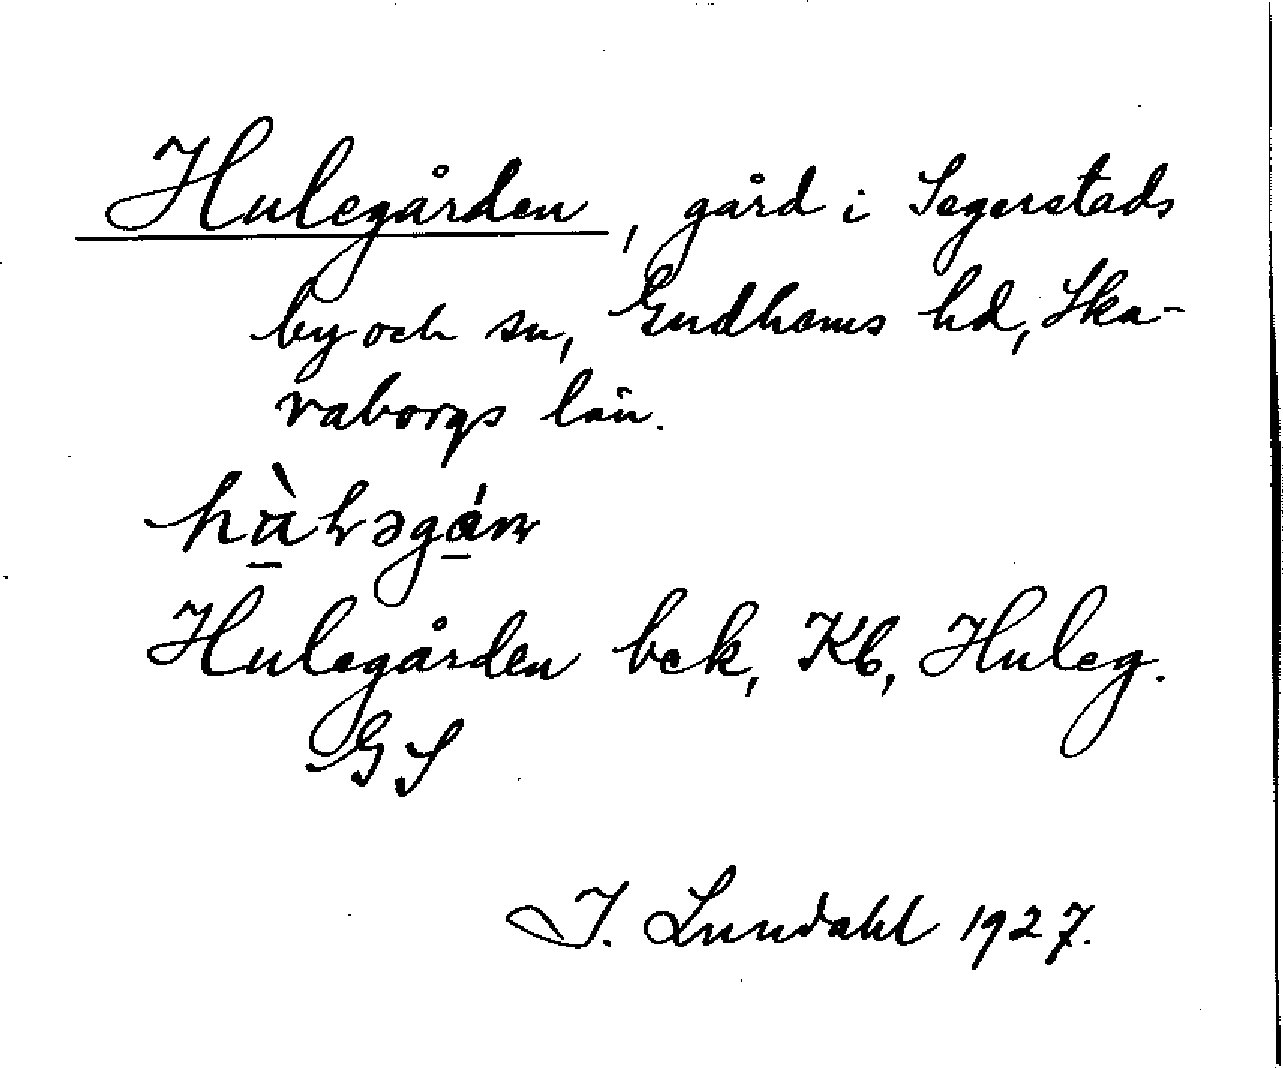 Hulegården, gård i Segerstads
by och sn, Gudhems hd, Ska-
raborgs län.
Hulegården bek, Kb, Huleg.
GS
I. Lundahl 1927.